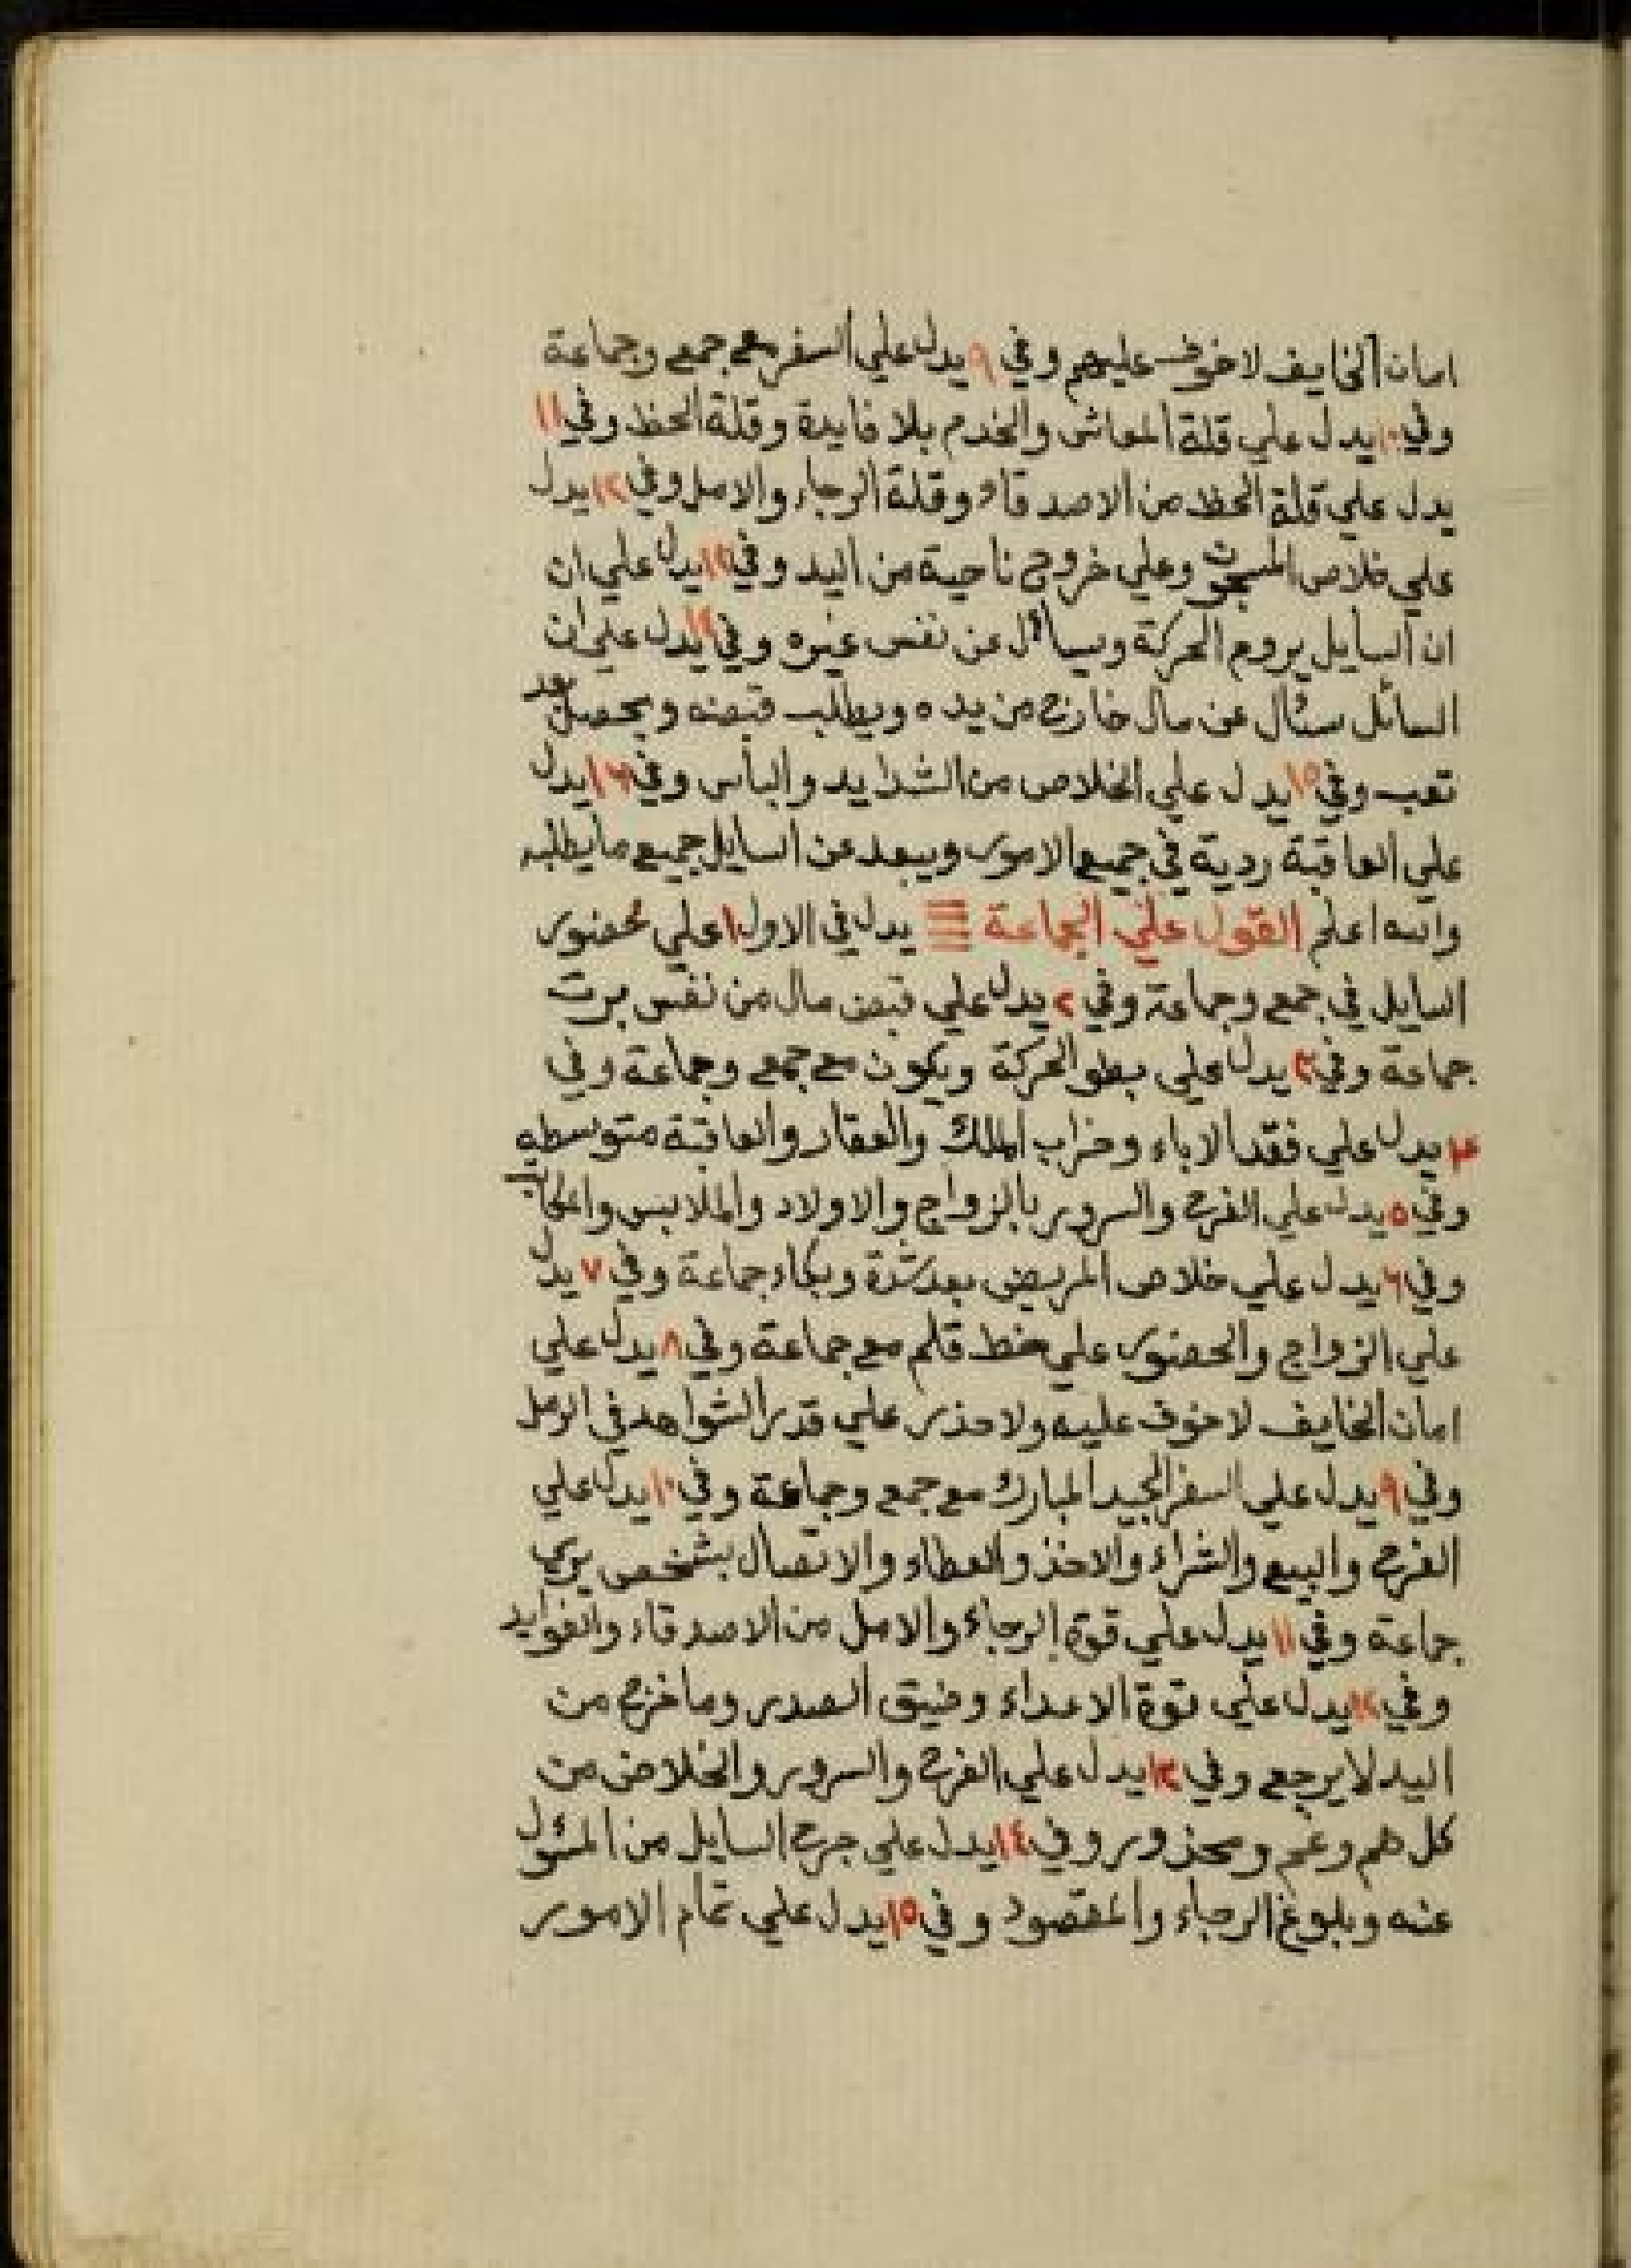 امان الخايف لا خوف عليهم وفي ٩ يدل علي السفر مع جمع وجماعة
وفي ١٠ يدل علي قلة المعاش والخدم بلا فايدة وقلة الحظ وفي ١١
يدل علي قلة الحظ من الاصدقاء وقلة الرجاء والامل وفي ١٢ يدل
علي خلاص المسجون وعلي خروج ناحية من اليد وفي ١٣ يدل علي ان
ان السايل يروم الحركة ويسأل عن نفس غيره وفي ١٤ يدل علي ان
السائل سئال عن مال خارج من يده ويطلب قبضه ويحصل بعد
تعب وفي ١٥ يدل علي الخلاص من الشدايد والبأس وفي ١٦ يدل
علي العاقبة ردية في جميع الامور ويبعد عن السايل جميع ما يطلبه
والله اعلم القول علي الجماعة يدل في الاول ١ علي حضور
السايل في جمع وجماعة وفي ٢ يدل علي قبض مال من نفس
جماعة وفي ٣ يدل علي بطو الحركة ويكون مع جمع وجماعة وفي
٤ يدل علي فقد الاباء وخراب الملك والعقار والعاقبة متوسطه
وفي ٥ يدل علي الفرح والسرور بالزواج والاولاد والملابس
وفي ٦ يدل علي خلاص المريض بعد شدة وبكاء جماعة وفي ٧ يدل
علي الزواج والحضور علي خط قلم مع جماعة وفي ٨ يدل علي
امان الخايف لا خوف عليه ولا حذر علي قدر الشواهد في الرمل
وفي ٩ يدل علي السفر الجيد المبارك مع جمع وجماعة وفي ١٠ يدل علي
الفرح والبيع والشراء والاخذ والعطاء والاتصال بشخص
جماعة وفي ١١ يدل علي قوة الرجاء والامل من الاصدقاء والفوايد
وفي ١٢ يدل علي قوة الاعداء وضيق الصدر وما خرج من
اليد لا يرجع وفي ١٣ يدل علي الفرح والسرور والخلاص من
كل هم وغم ومحذور وفي ١٤ يدل علي جرح السايل من المسؤل
عنه وبلوغ الرجاء والمقصود وفي ١٥ يدل علي تمام الامور